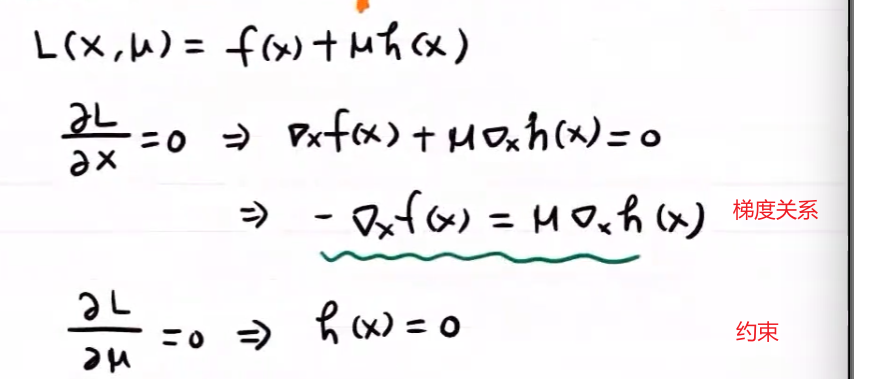 L(x,μ) = f(x) + μh(x)
∂L/∂x = 0 ⇒ ∇ₓf(x) + μ∇ₓh(x) = 0
⇒ -∇ₓf(x) = μ∇ₓh(x) 梯度关系
∂L/∂μ = 0 ⇒ h(x) = 0 约束